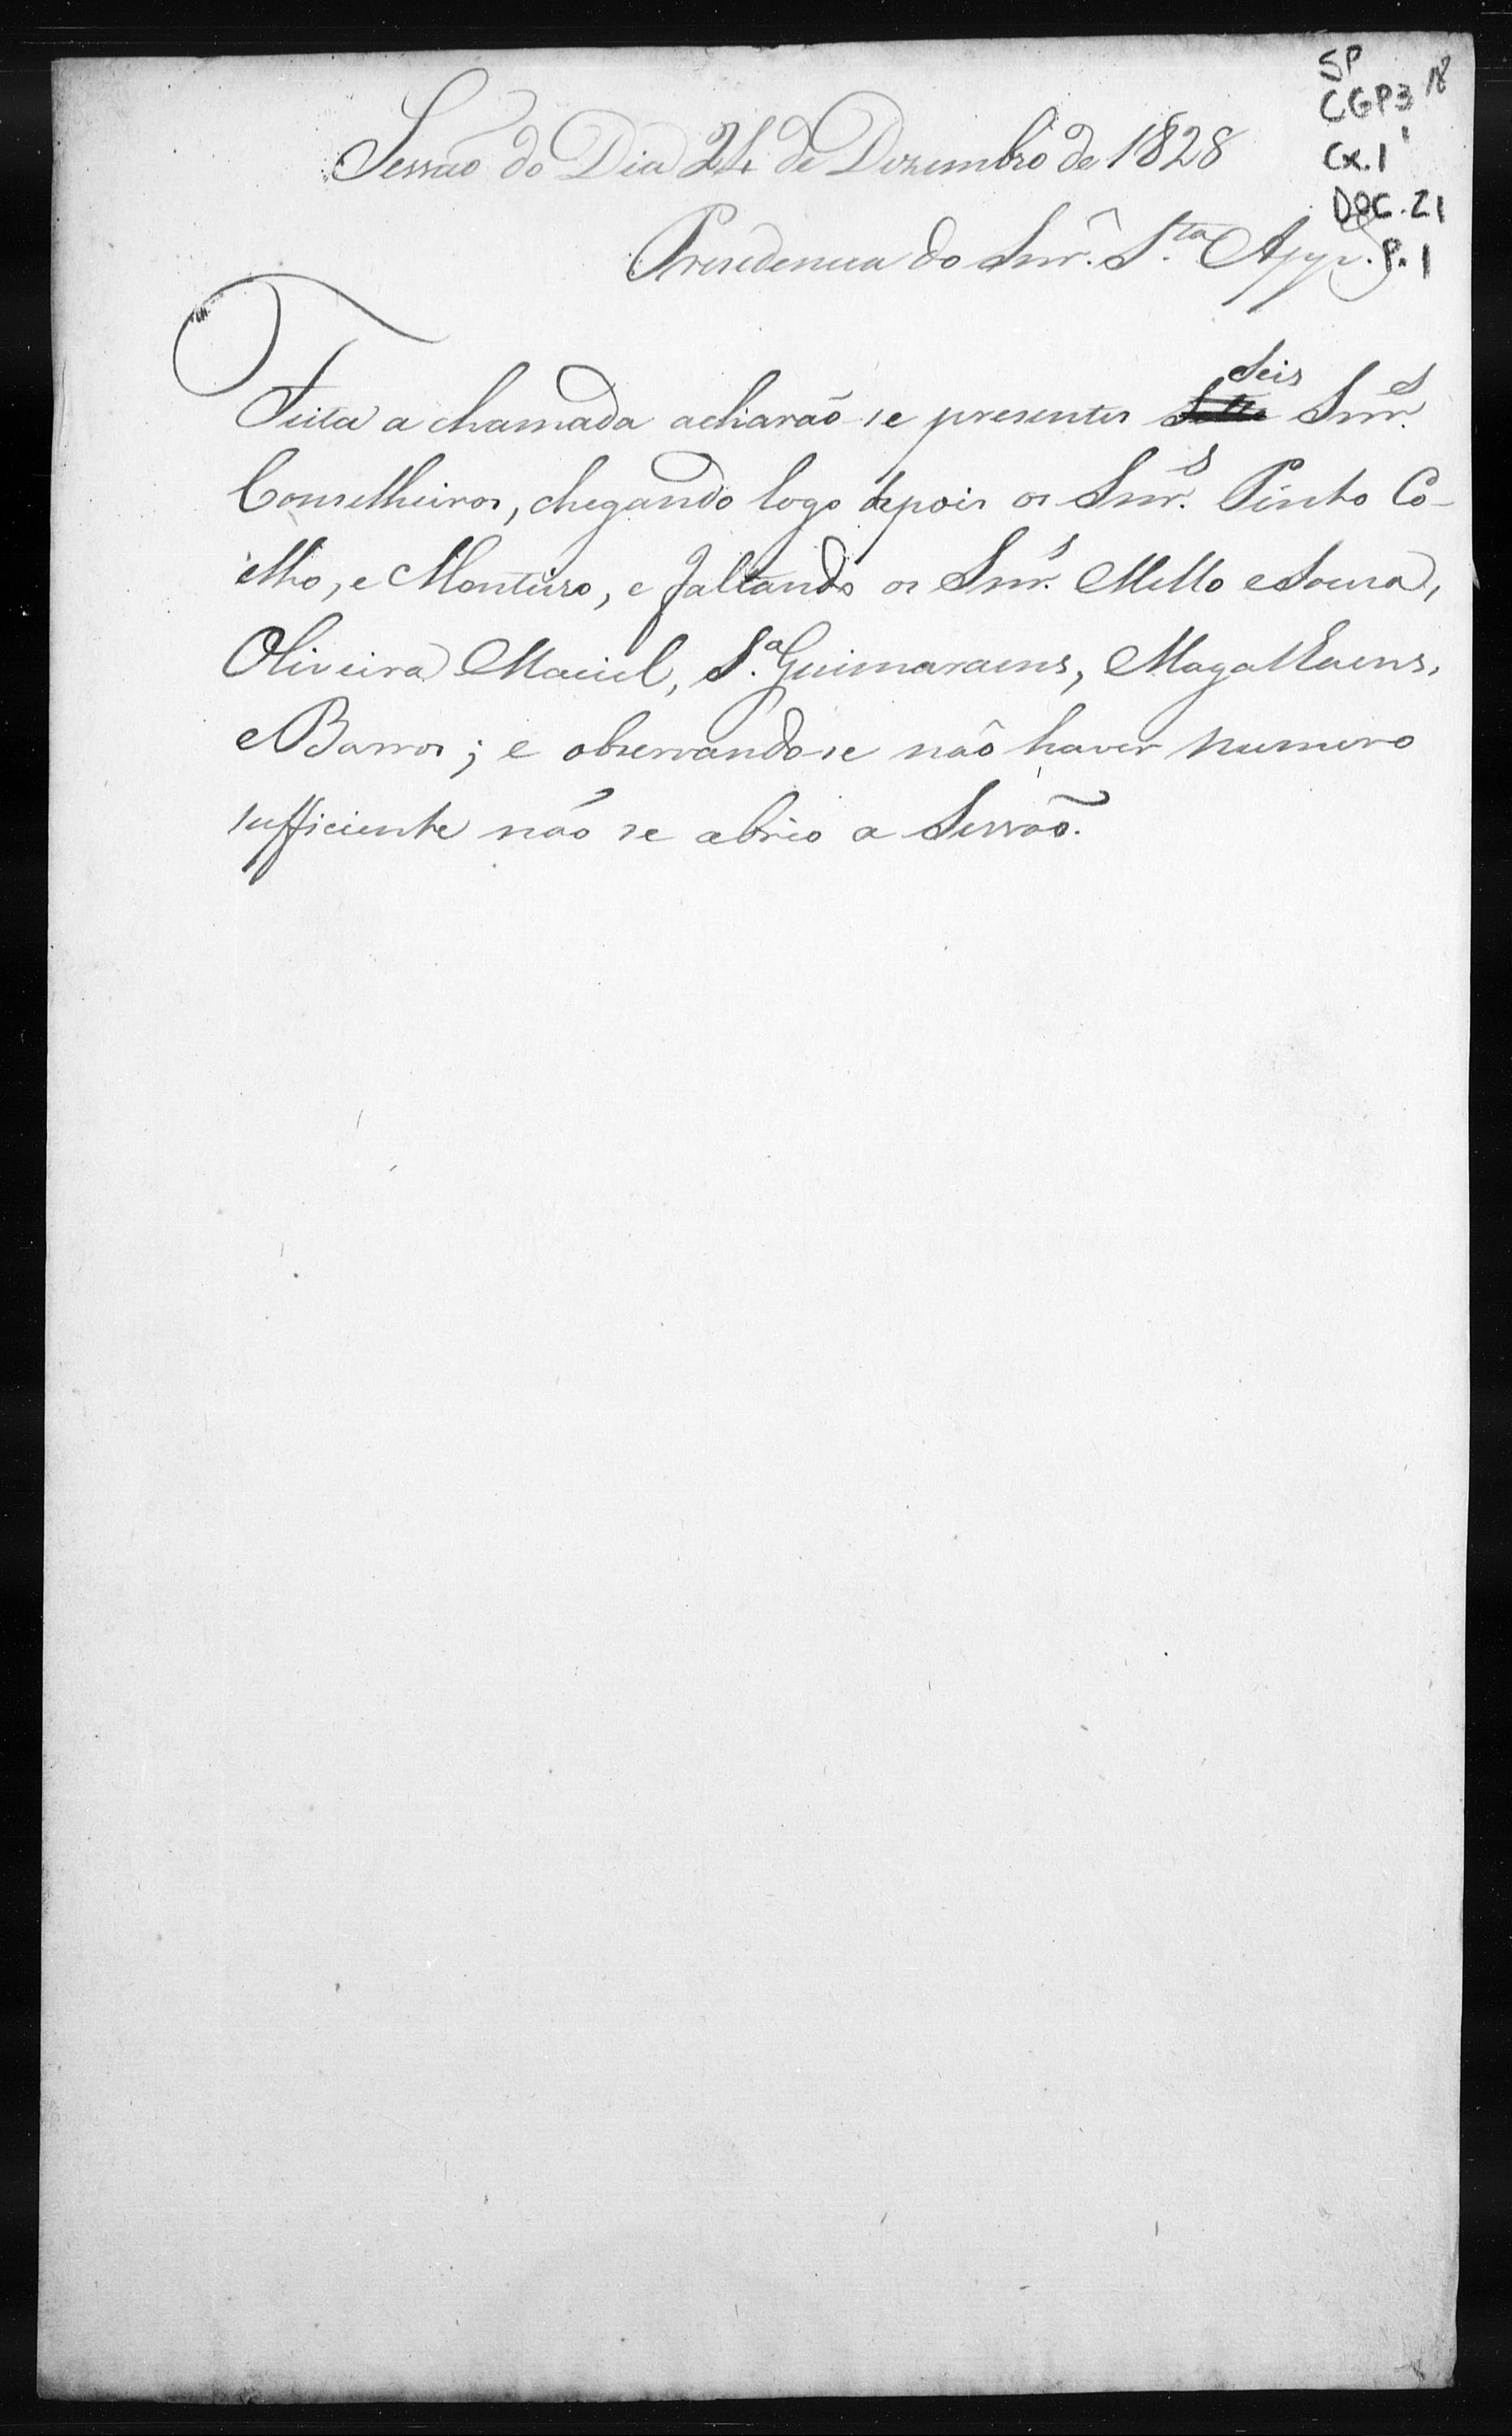 SP
CGP3 18
Cx. 1
DOC. 21
P. 1
Sessão do Dia 24 de Dezembro de 1828
Presidencia do Snr. S.ta App.
Feita a chamada acharão-se presentes Seis Snr.s
Conselheiros, chegando logo depois os Snr.s Pinto Co-
elho, e Monteiro, e faltando os Snr.s Mello e Souza,
Oliveira Maciel, S.a Guimaraens, Magalhaens,
e Barros; e observando-se não haver numero
sufficiente não se abrio a Sessão.